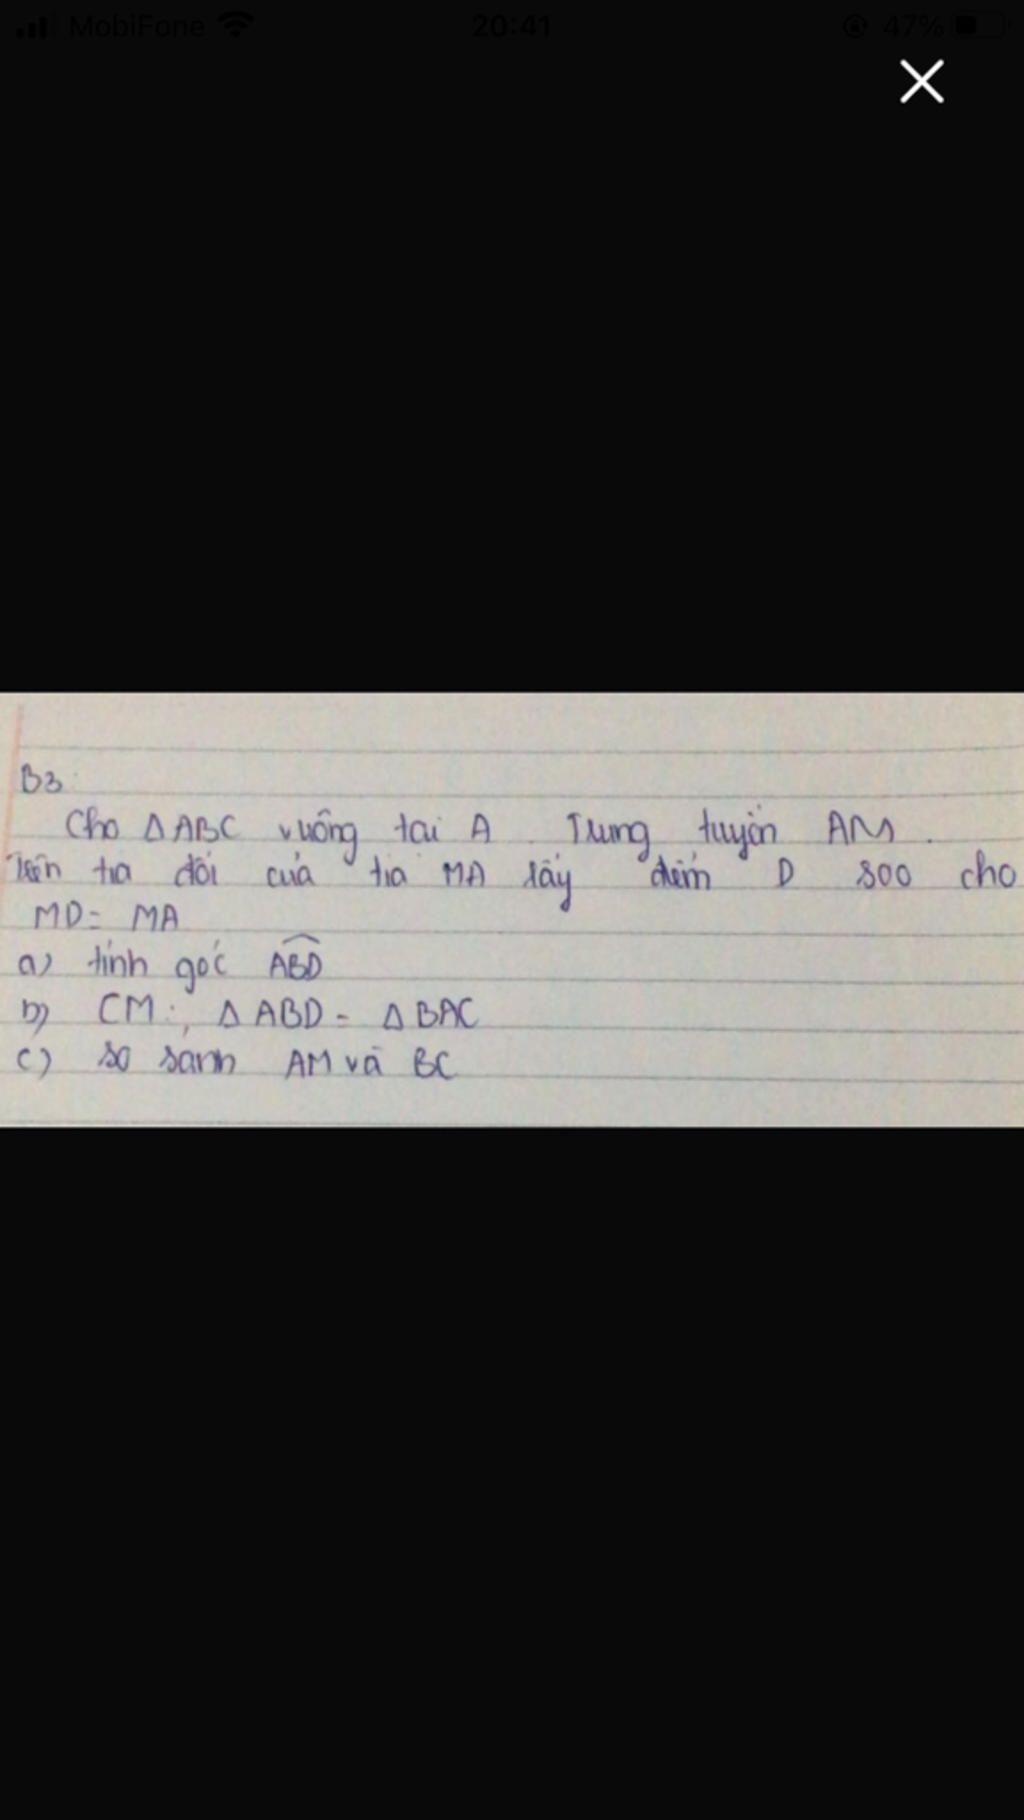 MobiFone 20:41 47%
B3:
Cho Δ ABC vuông tại A. Trung tuyến AM.
Trên tia đối của tia MA lấy điểm D sao cho
MD = MA
a) tính góc ABD
b) CM: Δ ABD = Δ BAC
c) so sánh AM và BC